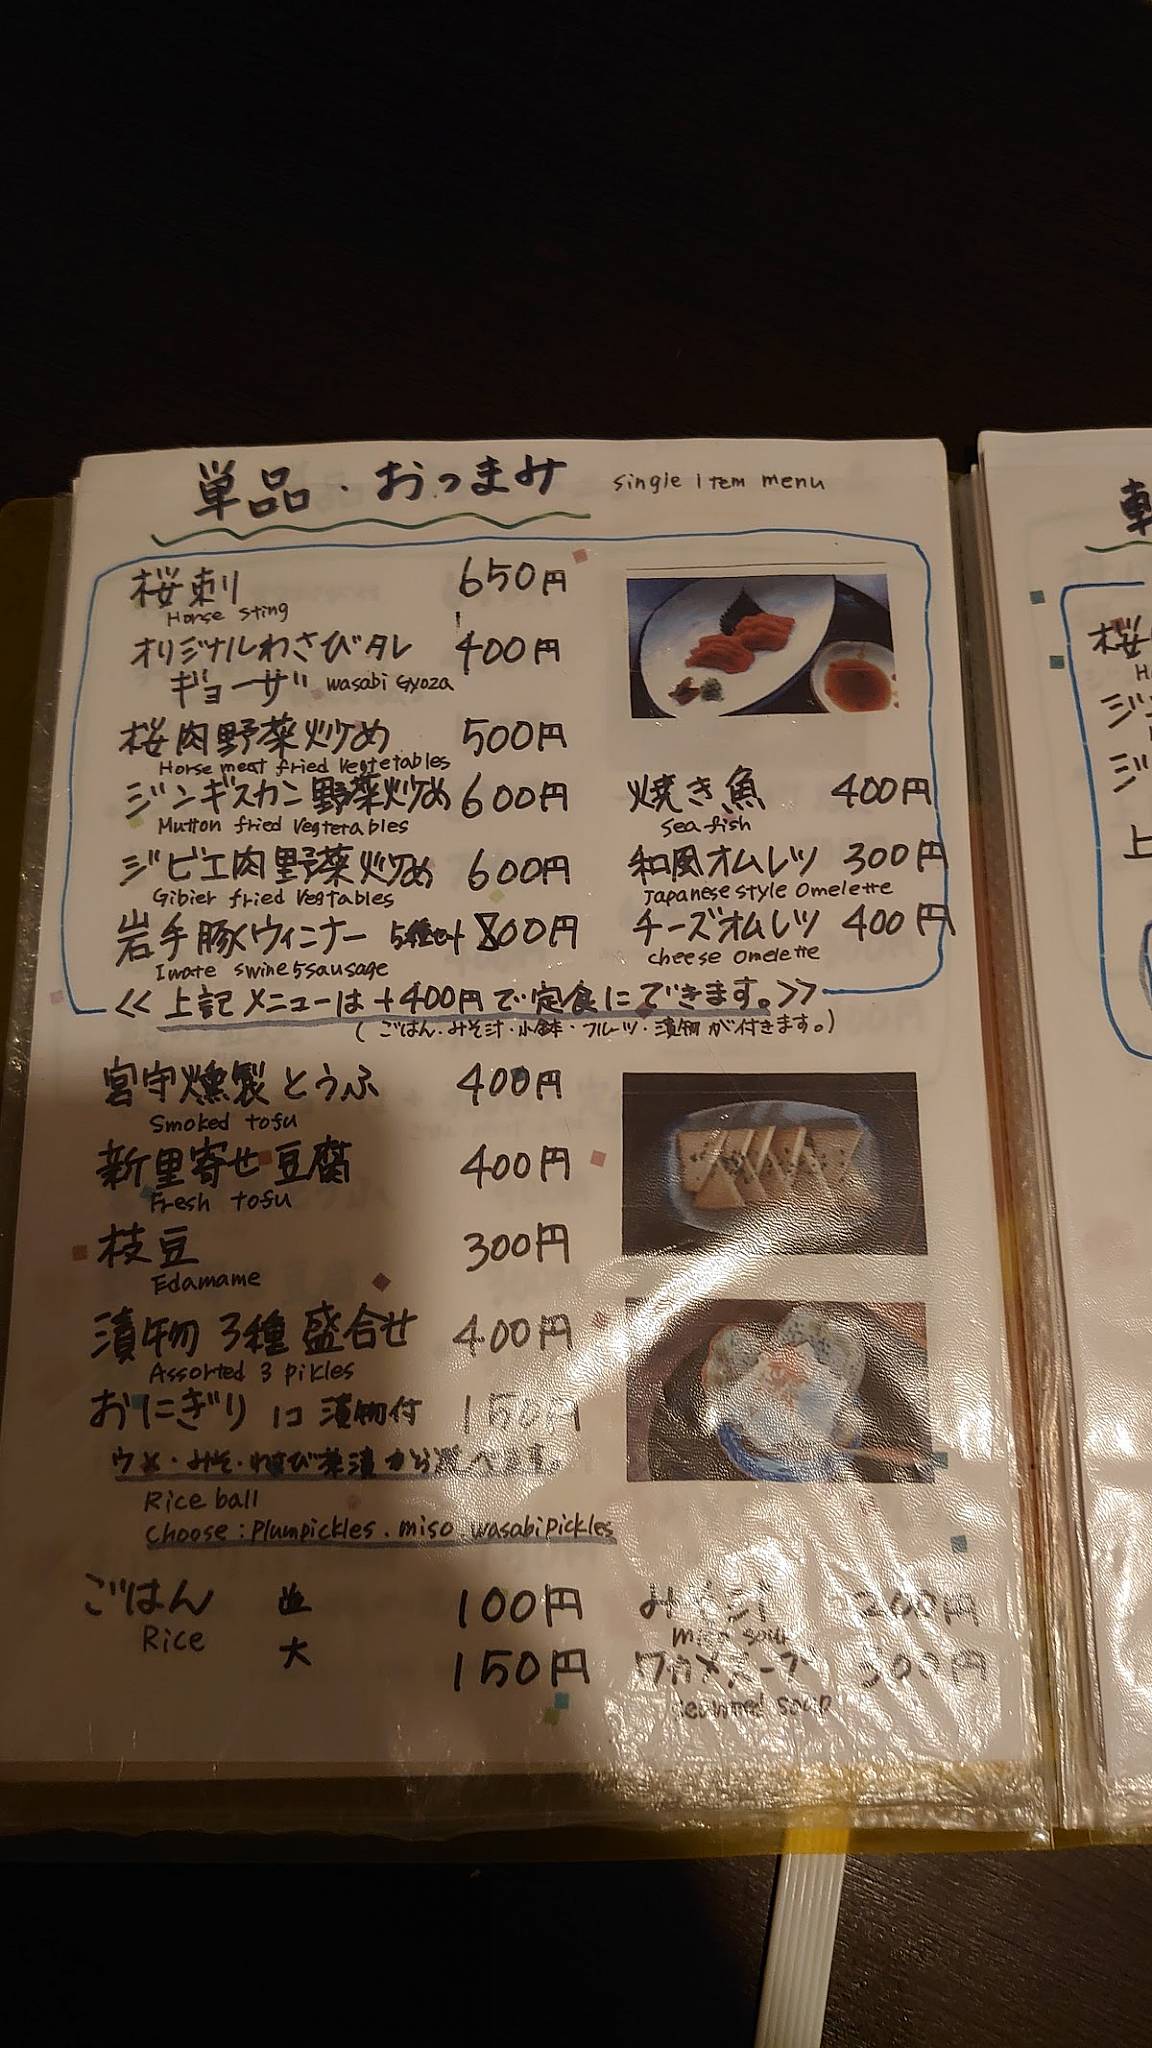 単品・おつまみ single item menu
桜刺 650円
Horse sting
オリジナルわさびタレ 400円
ギョーザ wasabi Gyoza
桜肉野菜炒め 500円
Horse meat fried Vegetetables
ジンギスカン野菜炒め 600円
Mutton fried Vegtetables
ジビエ肉野菜炒め 600円
Gibier fried Vegtables
岩手豚ウィンナー 5種セット 800円
Iwate swine 5sausage
焼き魚 400円
Sea fish
和風オムレツ 300円
Japanese style omelette
チーズオムレツ 400円
cheese omelette
<<上記メニューは+400円で定食にできます。>>
(ごはん・みそ汁・小鉢・フルーツ・漬物が付きます。)
宮守燻製とうふ 400円
Smoked tofu
新里寄せ豆腐 400円
Fresh tofu
枝豆 300円
Edamame
漬物3種盛合せ 400円
Assorted 3 pikles
おにぎり 1コ 漬物付 150円
ウメ・みそ・わさび葉漬から選べます。
Rice ball
choose : Plumpickles. miso. wasabipickles
ごはん 並 100円
Rice 大 150円
みそ汁 200円
miso soup
ワカメスープ 300円
seaweed soup
桜
ジン
ジ
上